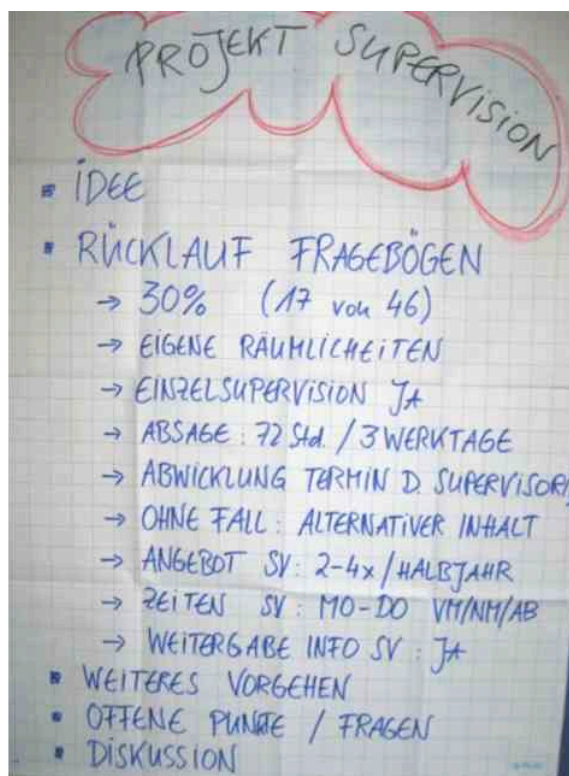 PROJEKT SUPERVISION
▪ IDEE
▪ RÜCKLAUF FRAGEBÖGEN
→ 30% (17 von 46)
→ EIGENE RÄUMLICHEITEN
→ EINZELSUPERVISION JA
→ ABSAGE: 72 Std. / 3 WERKTAGE
→ ABWICKLUNG TERMIN D. SUPERVISOR/
→ OHNE FALL: ALTERNATIVER INHALT
→ ANGEBOT SV: 2-4x / HALBJAHR
→ ZEITEN SV: MO-DO VM/NM/AB
→ WEITERGABE INFO SV: JA
▪ WEITERES VORGEHEN
▪ OFFENE PUNKTE / FRAGEN
▪ DISKUSSION